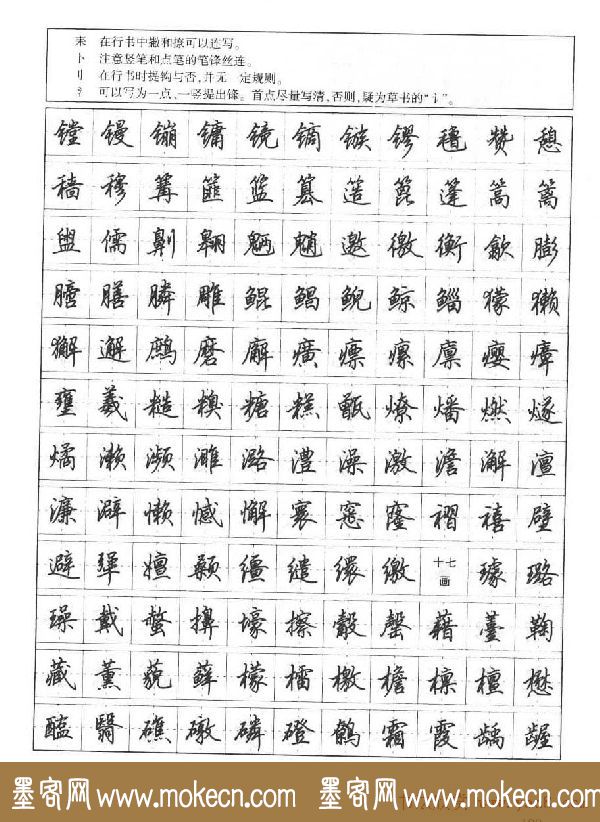 耒 在行书中撇和捺可以连写。
卜 注意竖笔和点笔的笔锋丝连。
刂 在行书时提钩与否,并无一定规则。
氵 可以写为一点、一竖提出锋。首点尽量写清,否则,疑为草书的“讠”。
镗 镘 镚 镛 镜 镝 镞 镠 穑 赞 憩
穑 穆 篝 篚 篮 篡 簉 篦 篷 篙 篱
盥 儒 劓 翱 魉 魈 邀 徼 衡 歙 膨
膪 膳 膦 雕 鲲 鲳 鲵 鲸 鲻 獴 獭
獬 邂 鹧 磨 廨 癀 瘭 瘰 廪 瘿 瘴
壅 羲 糙 糗 糖 糕 甑 燎 燔 燃 燧
燏 濑 濒 濉 潞 澧 澡 激 澹 澥 澶
濂 澼 懒 憾 懈 寰 窸 窿 褶 禧 壁
避 犟 嬗 颡 缰 缱 缳 缴 十七画 璩 璐
璪 戴 螫 擤 壕 擦 觳 罄 藉 薹 鞠
藏 薰 藐 藓 檬 檑 檄 檐 檩 檀 懋
醢 翳 礁 礅 磷 磴 鹩 霜 霞 龋 龌
墨客网 www.mokecn.com 墨客网 www.mokecn.com